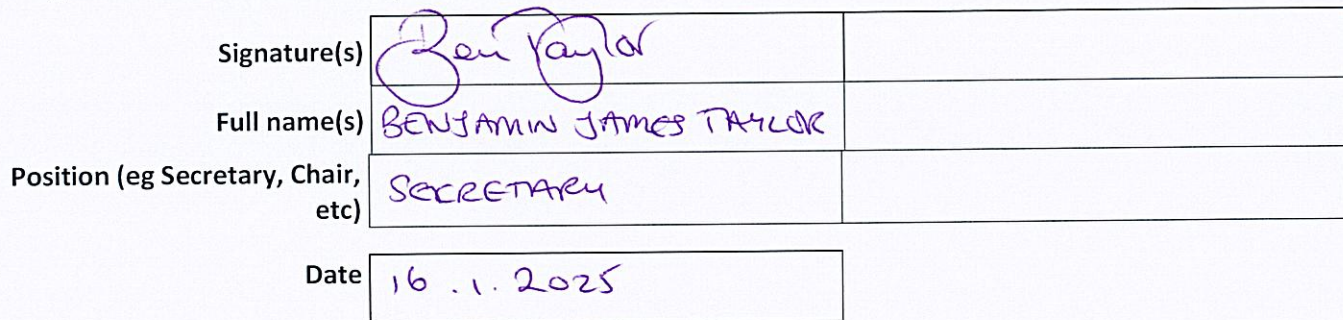 Signature(s) Ben Taylor
Full name(s) BENJAMIN JAMES TAYLOR
Position (eg Secretary, Chair,
etc) SECRETARY
Date 16.1.2025